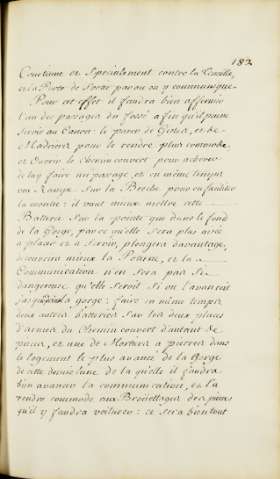 182
Courtine et specialement contre la Tenaille,
et la Porte de Sortie par où on y communique.
Pour cet effet il faudra bien affermir
l'un des passages du fossé afin qu'il puisse
servir au Canon: le parer de Gabions, et de
Madriers pour le rendre plus commode,
et ouvrir le chemin couvert pour achever
de luy faire un passage, et en même temps
une Rampe sur la Breche pour en faciliter
la montée: il vaut mieux mettre cette
Batterie sur la pointe que dans le fond
de la Gorge, parce qu'elle sera plus aisée
a placer et a servir, plongera davantage,
découvrira mieux la Poterne, et la
Communication n'en sera pas si
dangereuse qu'elle seroit si on l'avançoit
jusqu'à la gorge: faire en même temps
deux autres batteries sur les deux places
d'armes du Chemin couvert d'autant de
pieces, et une de Mortiers a pierres dans
le logement le plus avancé de la Gorge
de cette demie lune de laquelle il faudra
bien avancer la communication, et la
rendre commode aux des pieces
qu'il y faudra voiturer: ce sera bientout